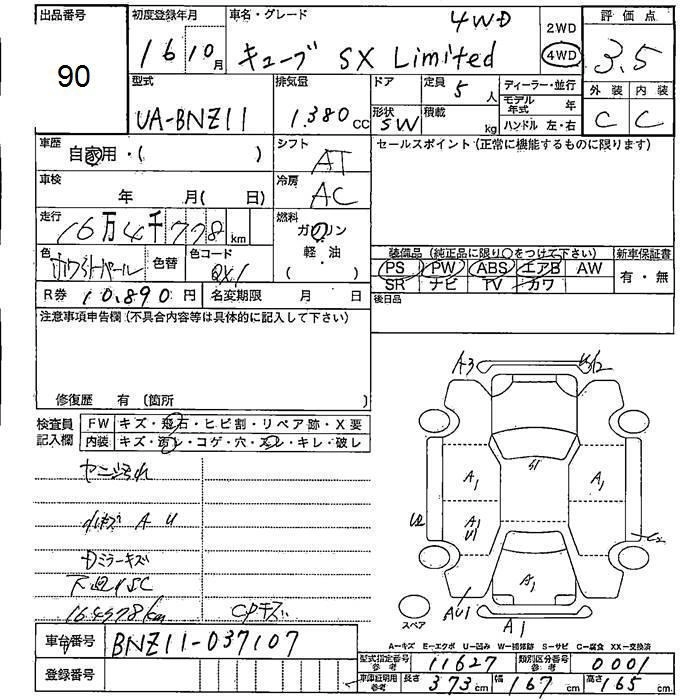 出品番号
90
初度登録年月
16 10月
車名・グレード
4WD
キューブ SX Limited
2WD
4WD
評価点
3.5
外装 内装
C C
型式
UA-BNZ11
排気量
1.380 CC
ドア
形状
5W
定員 5 人
積載 kg
ディーラー・並行
モデル年式 年
ハンドル 左・右
車歴
自家用・( )
シフト
AT
セールスポイント (正常に機能するものに限ります)
車検
年 月( 日)
冷房
AC
走行
16万4千778 km
燃料
ガソリン
軽・油
( )
色
ホワイトパール
色替
色コード
QX1
装備品 (純正品に限り○をつけて下さい)
PS PW ABS エアB AW
SR ナビ TV カワ
新車保証書
有・無
R券 10,890 円
名変期限 月 日
後日品
注意事項申告欄 (不具合内容等は具体的に記入して下さい)
修復歴 有 〔箇所 〕
検査員記入欄
FW キズ・飛石・ヒビ割・リペア跡・X要
内装 キズ・汚レ・コゲ・穴・スレ・キレ・破レ
ヤニ汚れ
小キズ A U
Dミラーキズ
下廻りSC
164978km
CPキズ
A3
S1
A1
A1
A1
U1
A1
AU1
A1
スペア
A=キズ E=エクボ U=凹み W=補修跡 S=サビ C=腐食 XX=交換済
車台番号 BNZ11-037107
登録番号
型式指定番号 参考 11627
類別区分番号 参考 0001
車庫証明用 参考 長さ 373cm 幅 167cm 高さ 165cm